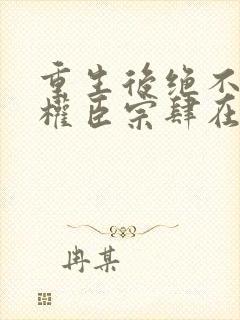 重生後绝不
權臣宗肆在
冉某